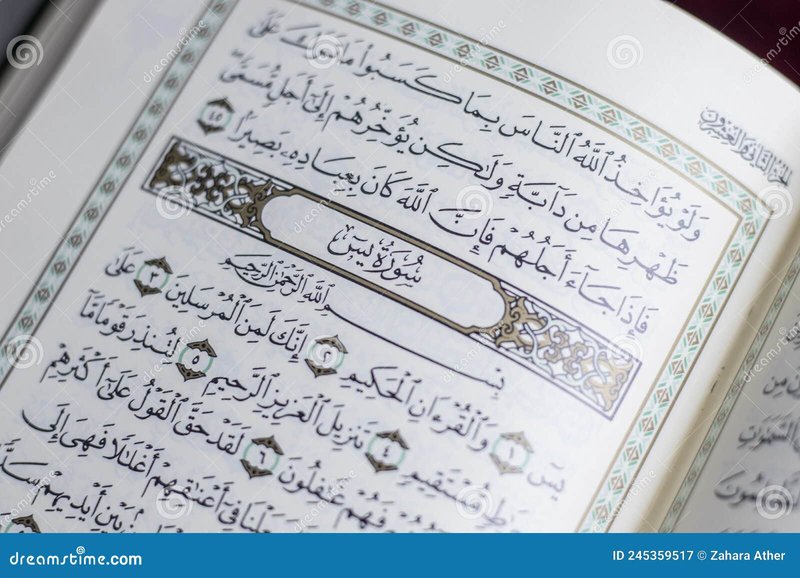 الجزء الثاني والعشرون
وَلَوْ يُؤَاخِذُ ٱللَّهُ ٱلنَّاسَ بِمَا كَسَبُوا۟ مَا تَرَكَ عَلَىٰ
ظَهْرِهَا مِن دَآبَّةٍ وَلَٰكِن يُؤَخِّرُهُمْ إِلَىٰٓ أَجَلٍ مُّسَمًّى
فَإِذَا جَآءَ أَجَلُهُمْ فَإِنَّ ٱللَّهَ كَانَ بِعِبَادِهِۦ بَصِيرًۢا ٤٥
سُورَةُ يسٓ
بِسْمِ ٱللَّهِ ٱلرَّحْمَٰنِ ٱلرَّحِيمِ
يسٓ ١ وَٱلْقُرْءَانِ ٱلْحَكِيمِ ٢ إِنَّكَ لَمِنَ ٱلْمُرْسَلِينَ ٣ عَلَىٰ
صِرَٰطٍ مُّسْتَقِيمٍ ٤ تَنزِيلَ ٱلْعَزِيزِ ٱلرَّحِيمِ ٥ لِتُنذِرَ قَوْمًا مَّآ
فَهُمْ غَٰفِلُونَ ٦ لَقَدْ حَقَّ ٱلْقَوْلُ عَلَىٰٓ أَكْثَرِهِمْ
فِىٓ أَعْنَٰقِهِمْ أَغْلَٰلًا فَهِىَ إِلَى
بَيْنِ أَيْدِيهِمْ سَدًّا
dreamstime.com
ID 245359517 © Zahara Ather